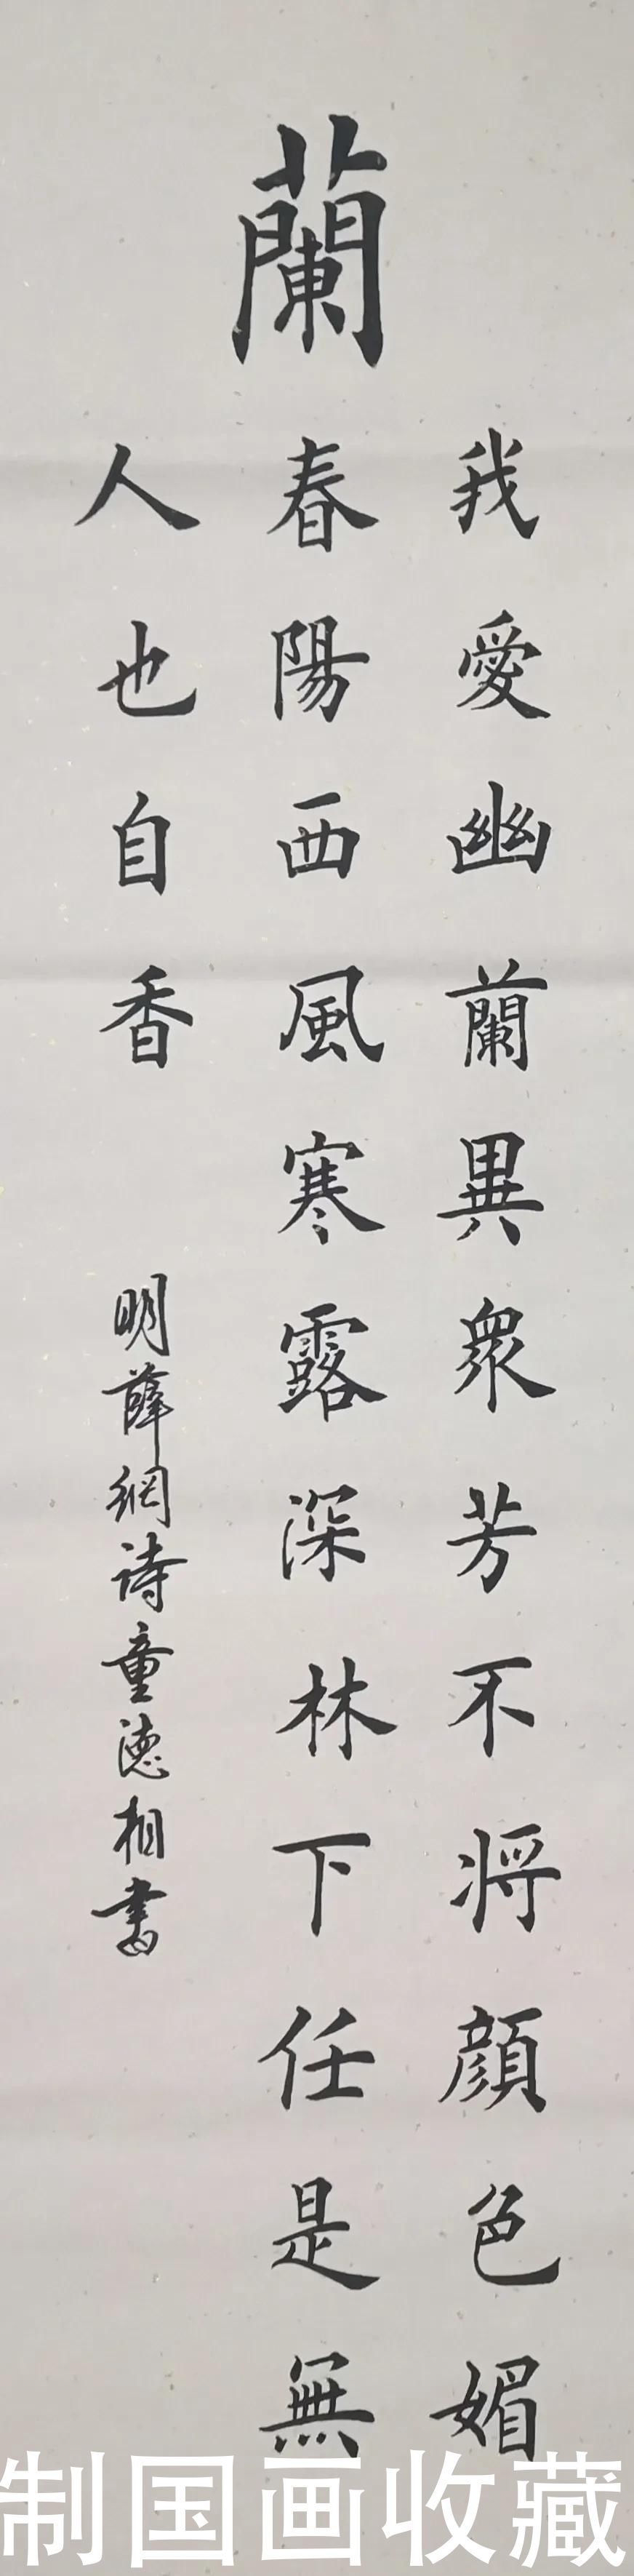 蘭
我愛幽蘭異衆芳不将顔色媚
春陽西風寒露深林下任是無
人也自香
明薛網詩童德相書
制国画收藏